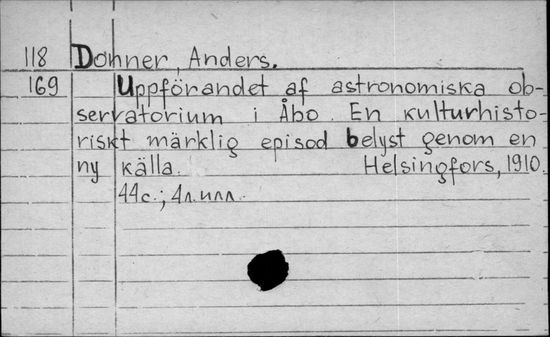 118 Donner, Anders.
169 Uppförandet af astronomiska ob-
servatorium i Åbo. En kulturhisto-
riskt märklig episod belyst genom en
ny källa. Helsingfors, 1910.
44с.; 4л.илл.